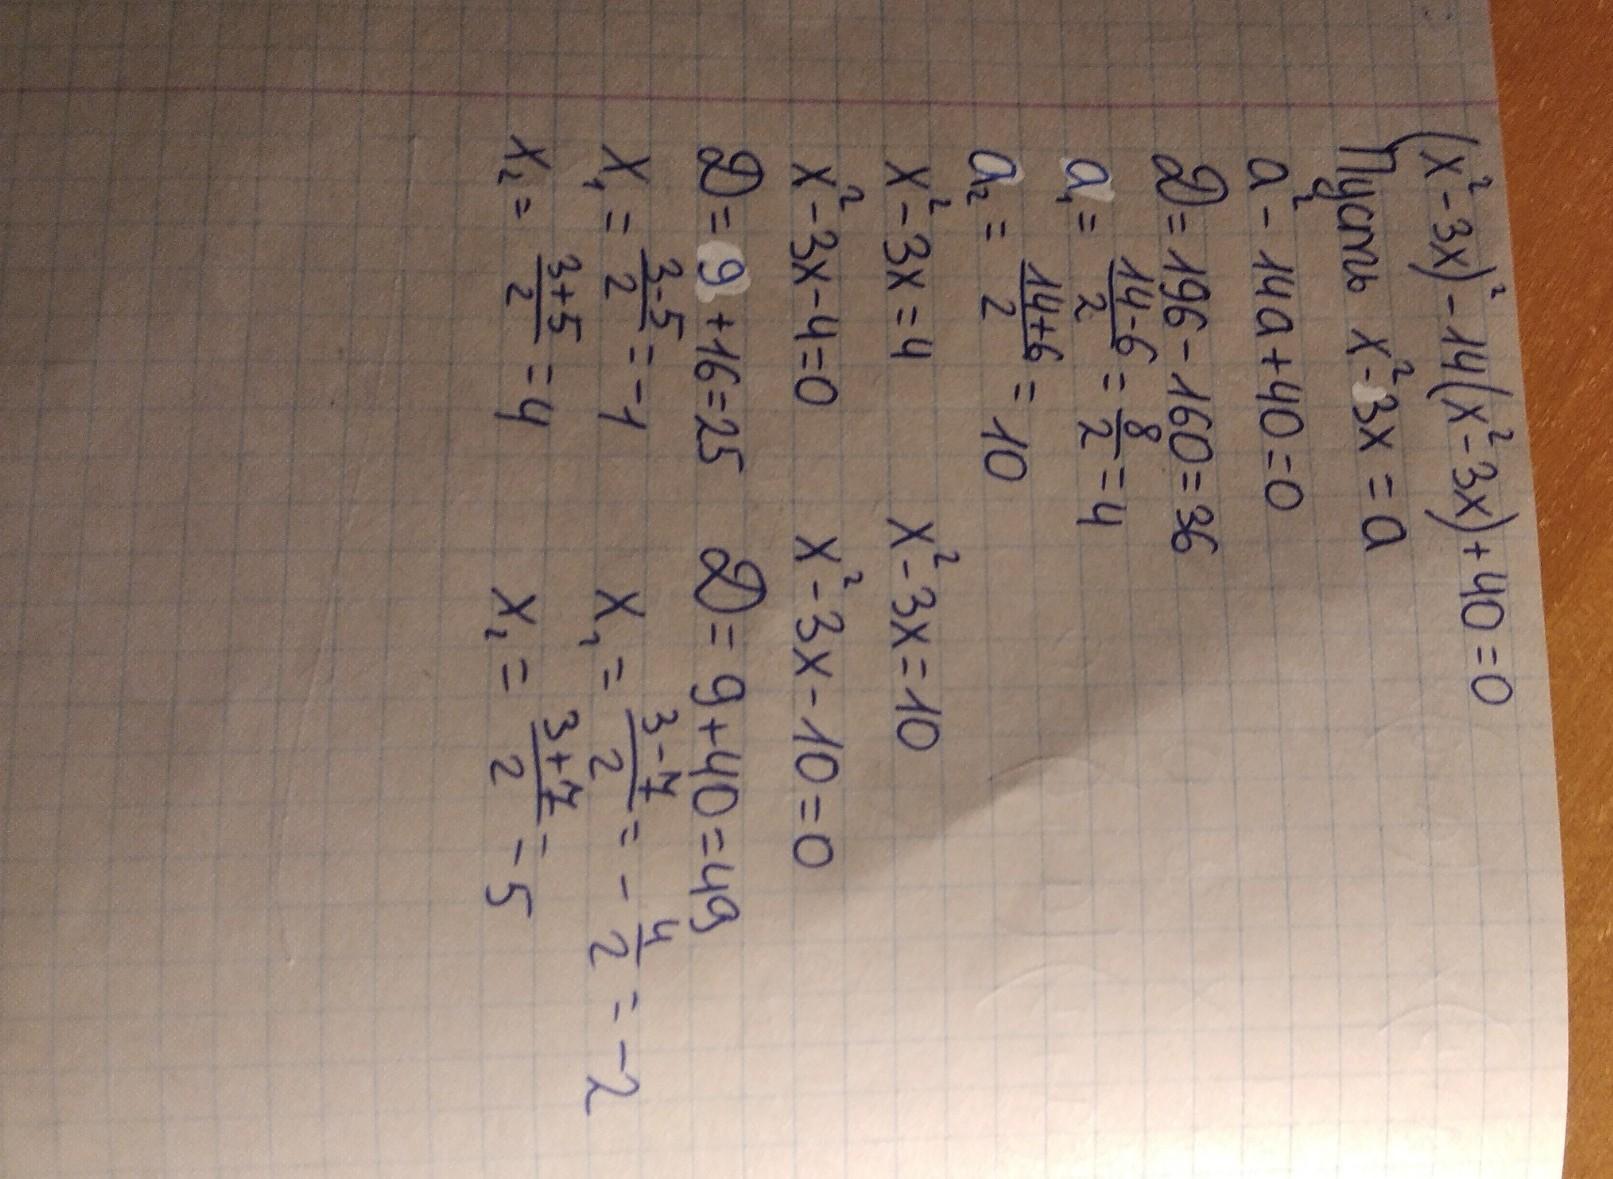 (x²-3x)²-14(x²-3x)+40=0
Пусть x²-3x=a
a²-14a+40=0
D=196-160=36
a₁=\frac{14-6}{2}=\frac{8}{2}=4
a₂=\frac{14+6}{2}=10
x²-3x=4 x²-3x=10
x²-3x-4=0 x²-3x-10=0
D=9+16=25 D=9+40=49
x₁=\frac{3-5}{2}=-1 x₁=\frac{3-7}{2}=-\frac{4}{2}=-2
x₂=\frac{3+5}{2}=4 x₂=\frac{3+7}{2}=5